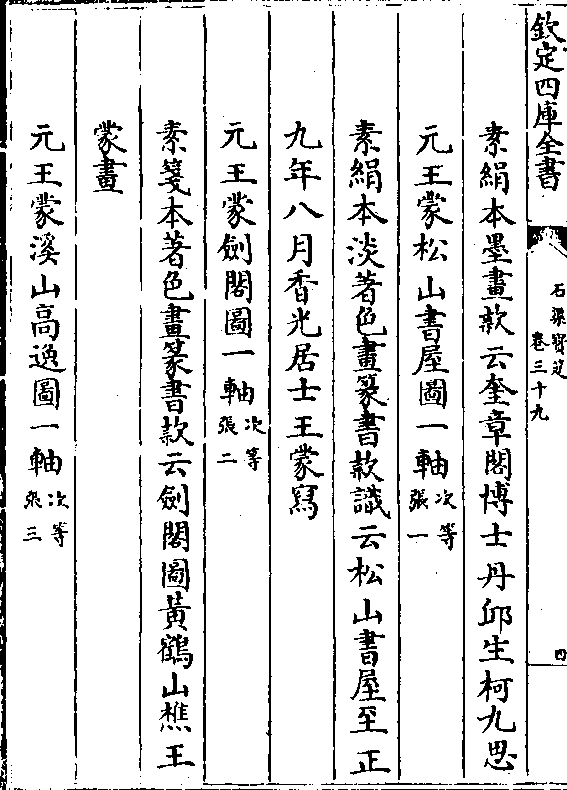 欽定四庫全書
石渠寶笈
卷三十九
四
素絹本墨畫款云奎章閣博士丹邱生柯九思
元王蒙松山書屋圖一軸次等張一
素絹本淡著色畫篆書款識云松山書屋至正
九年八月香光居士王蒙寫
元王蒙劍閣圖一軸次等張二
素箋本著色畫篆書款云劍閣圖黃鶴山樵王
蒙畫
元王蒙溪山高逸圖一軸次等張三